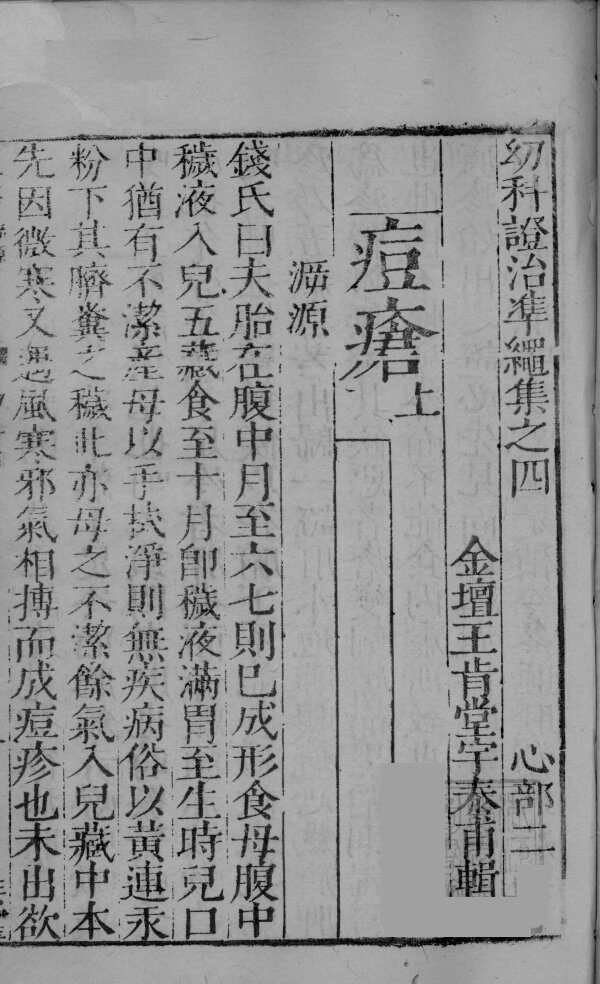 幼科證治準繩集之四 心部二
金壇王肯堂宇泰甫輯
痘瘡上
溯源
錢氏曰夫胎在腹中月至六七則已成形食母腹中
穢液入兒五藏食至十月卽穢液滿胃至生時兒口
中猶有不潔産母以手拭淨則無疾病俗以黃連汞
粉下其臍糞之穢此亦母之不潔餘氣入兒藏中本
先因微寒又遇風寒邪氣相搏而成痘疹也未出欲